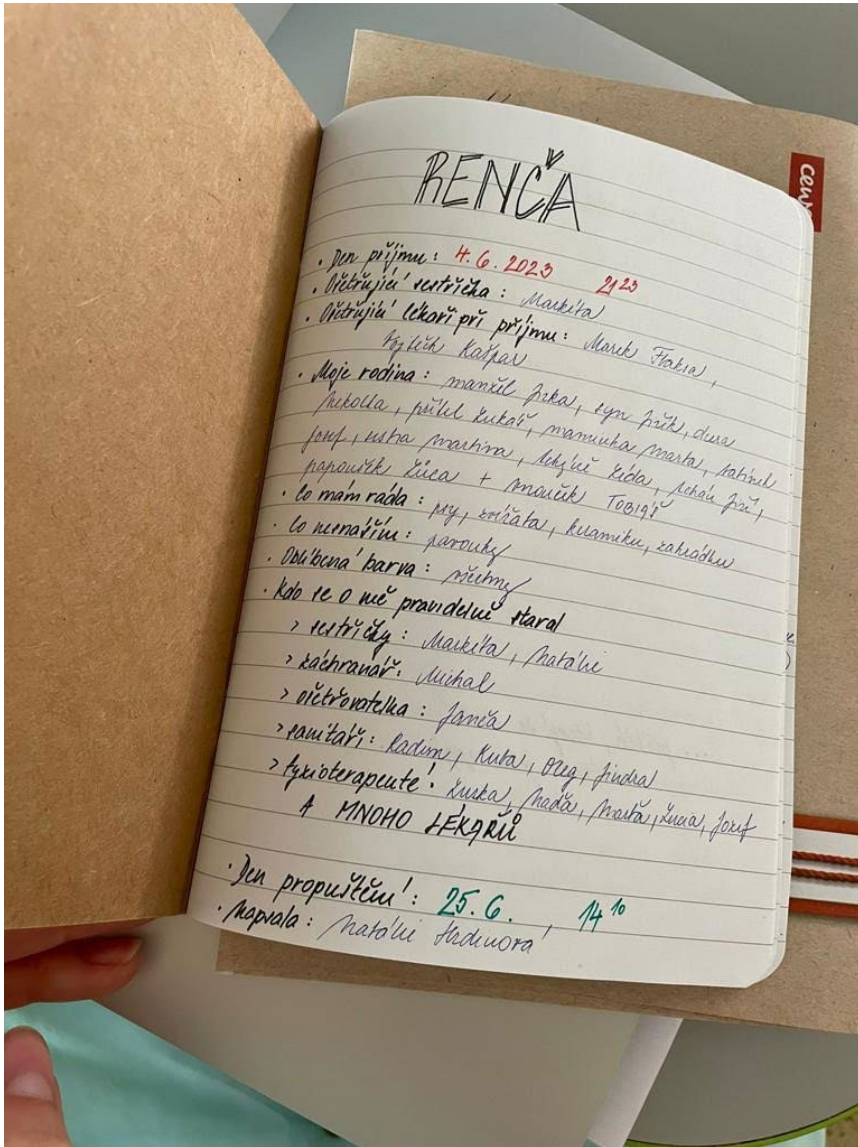 RENČA
• Den příjmu: 4. 6. 2023 21 23
• Ošetřující sestřička: Markéta
• Ošetřující lékaři při příjmu: Marek
Vojtěch Kašpar
• Moje rodina: manžel Jirka, syn Jiřík, dcera
Nikolka, přítel Lukáš, maminka Marta, tatínek
Josef, sestra Martina, tchýně Lída, tchán Jiří,
papoušek + vnouček TOBIÁŠ
• Co mám ráda: psy, zvířata, keramiku, zahrádku
• Co nesnáším: pavouky
• Oblíbená barva: všechny
• Kdo se o mě pravidelně staral
> sestřičky: Markéta, Natálie
> záchranář: Michal
> ošetřovatelka: Janča
> sanitáři: Radim, Kuba, Oleg, Jindra
> fyzioterapeuté: Zuzka, Naďa, Lucia, Josef
A MNOHO LÉKAŘŮ
• Den propuštění: 25. 6., 14 10
• Napsala: Natálie